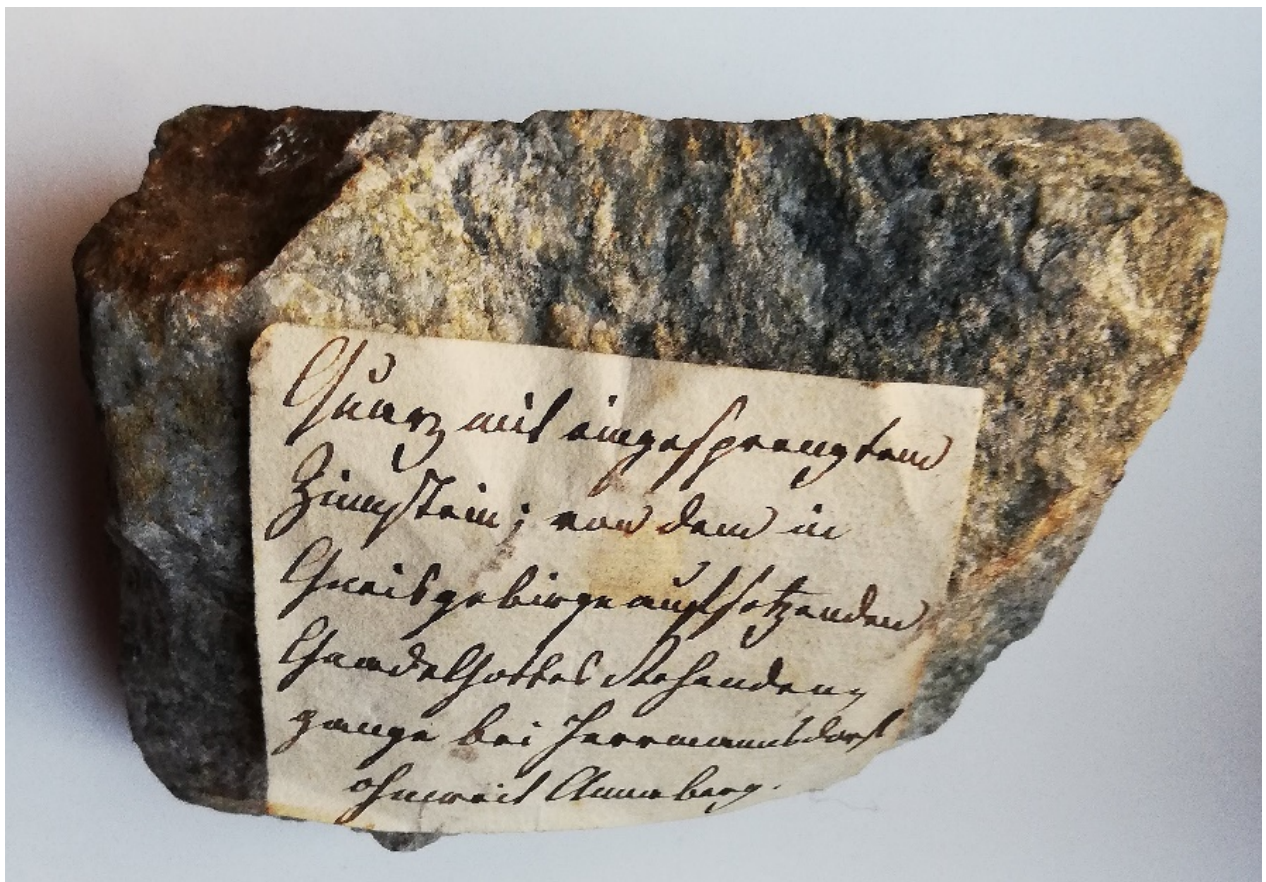 Quarz mit eingesprengtem
Zinnstein; von dem in
Gneisgebirge aufsetzenden
Gnade Gottes Stehenden
gange bei Herrmannsdorf
ohnweit Annaberg.